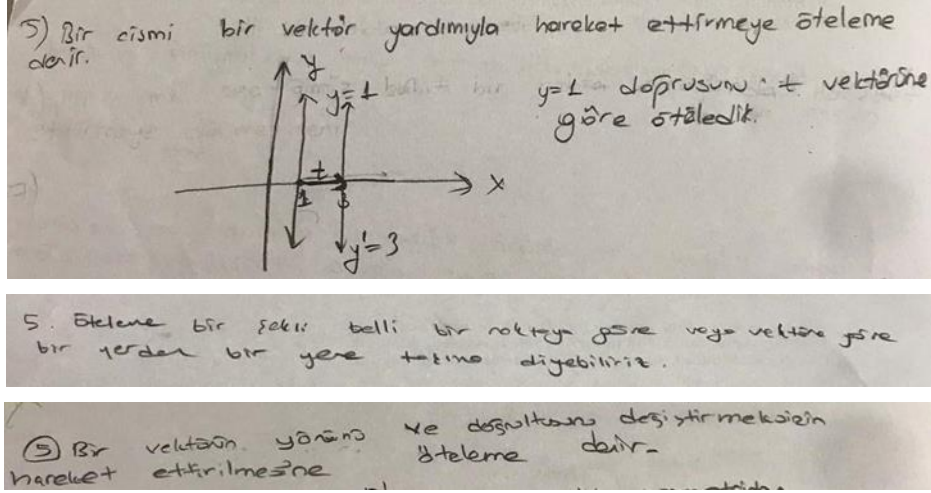 5) Bir cismi bir vektör yardımıyla hareket ettirmeye öteleme
denir.
y
y=1
y=1 doğrusunu t vektörüne
göre öteledik.
t
x
1 3
y'=3
5. Öteleme bir şekli belli bir noktaya göre veya vektöre göre
bir yerden bir yere taşıma diyebiliriz.
5 Bir vektörün yönünü ve doğrultusunu değiştirmeksizin
hareket ettirilmesine öteleme denir.